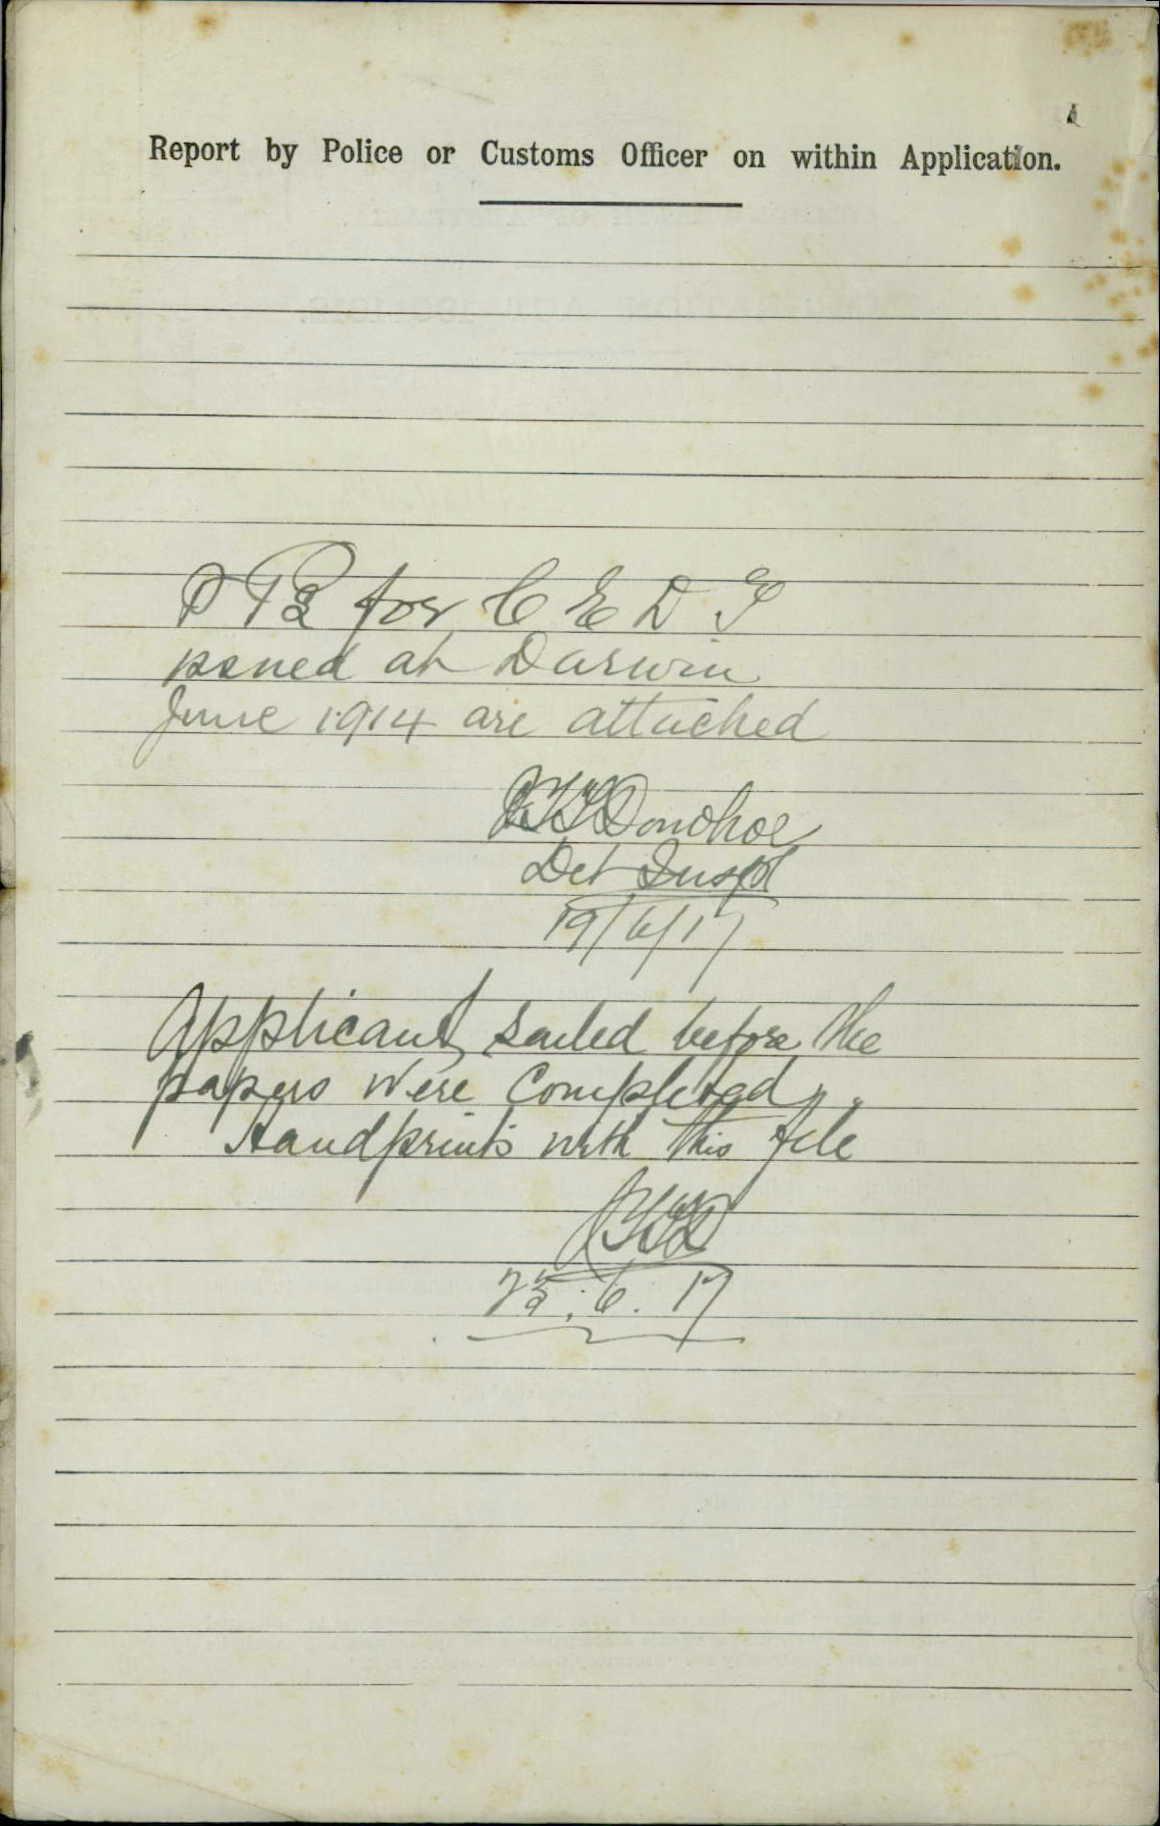 Report by Police or Customs Officer on within Application.
for C E D T
issued at Darwin
June 1914 are attached
Donohoe
Det Inspr
19/6/17
Applicant sailed before the
papers were completed.
Handprints with this file
JTTD
25.6.17